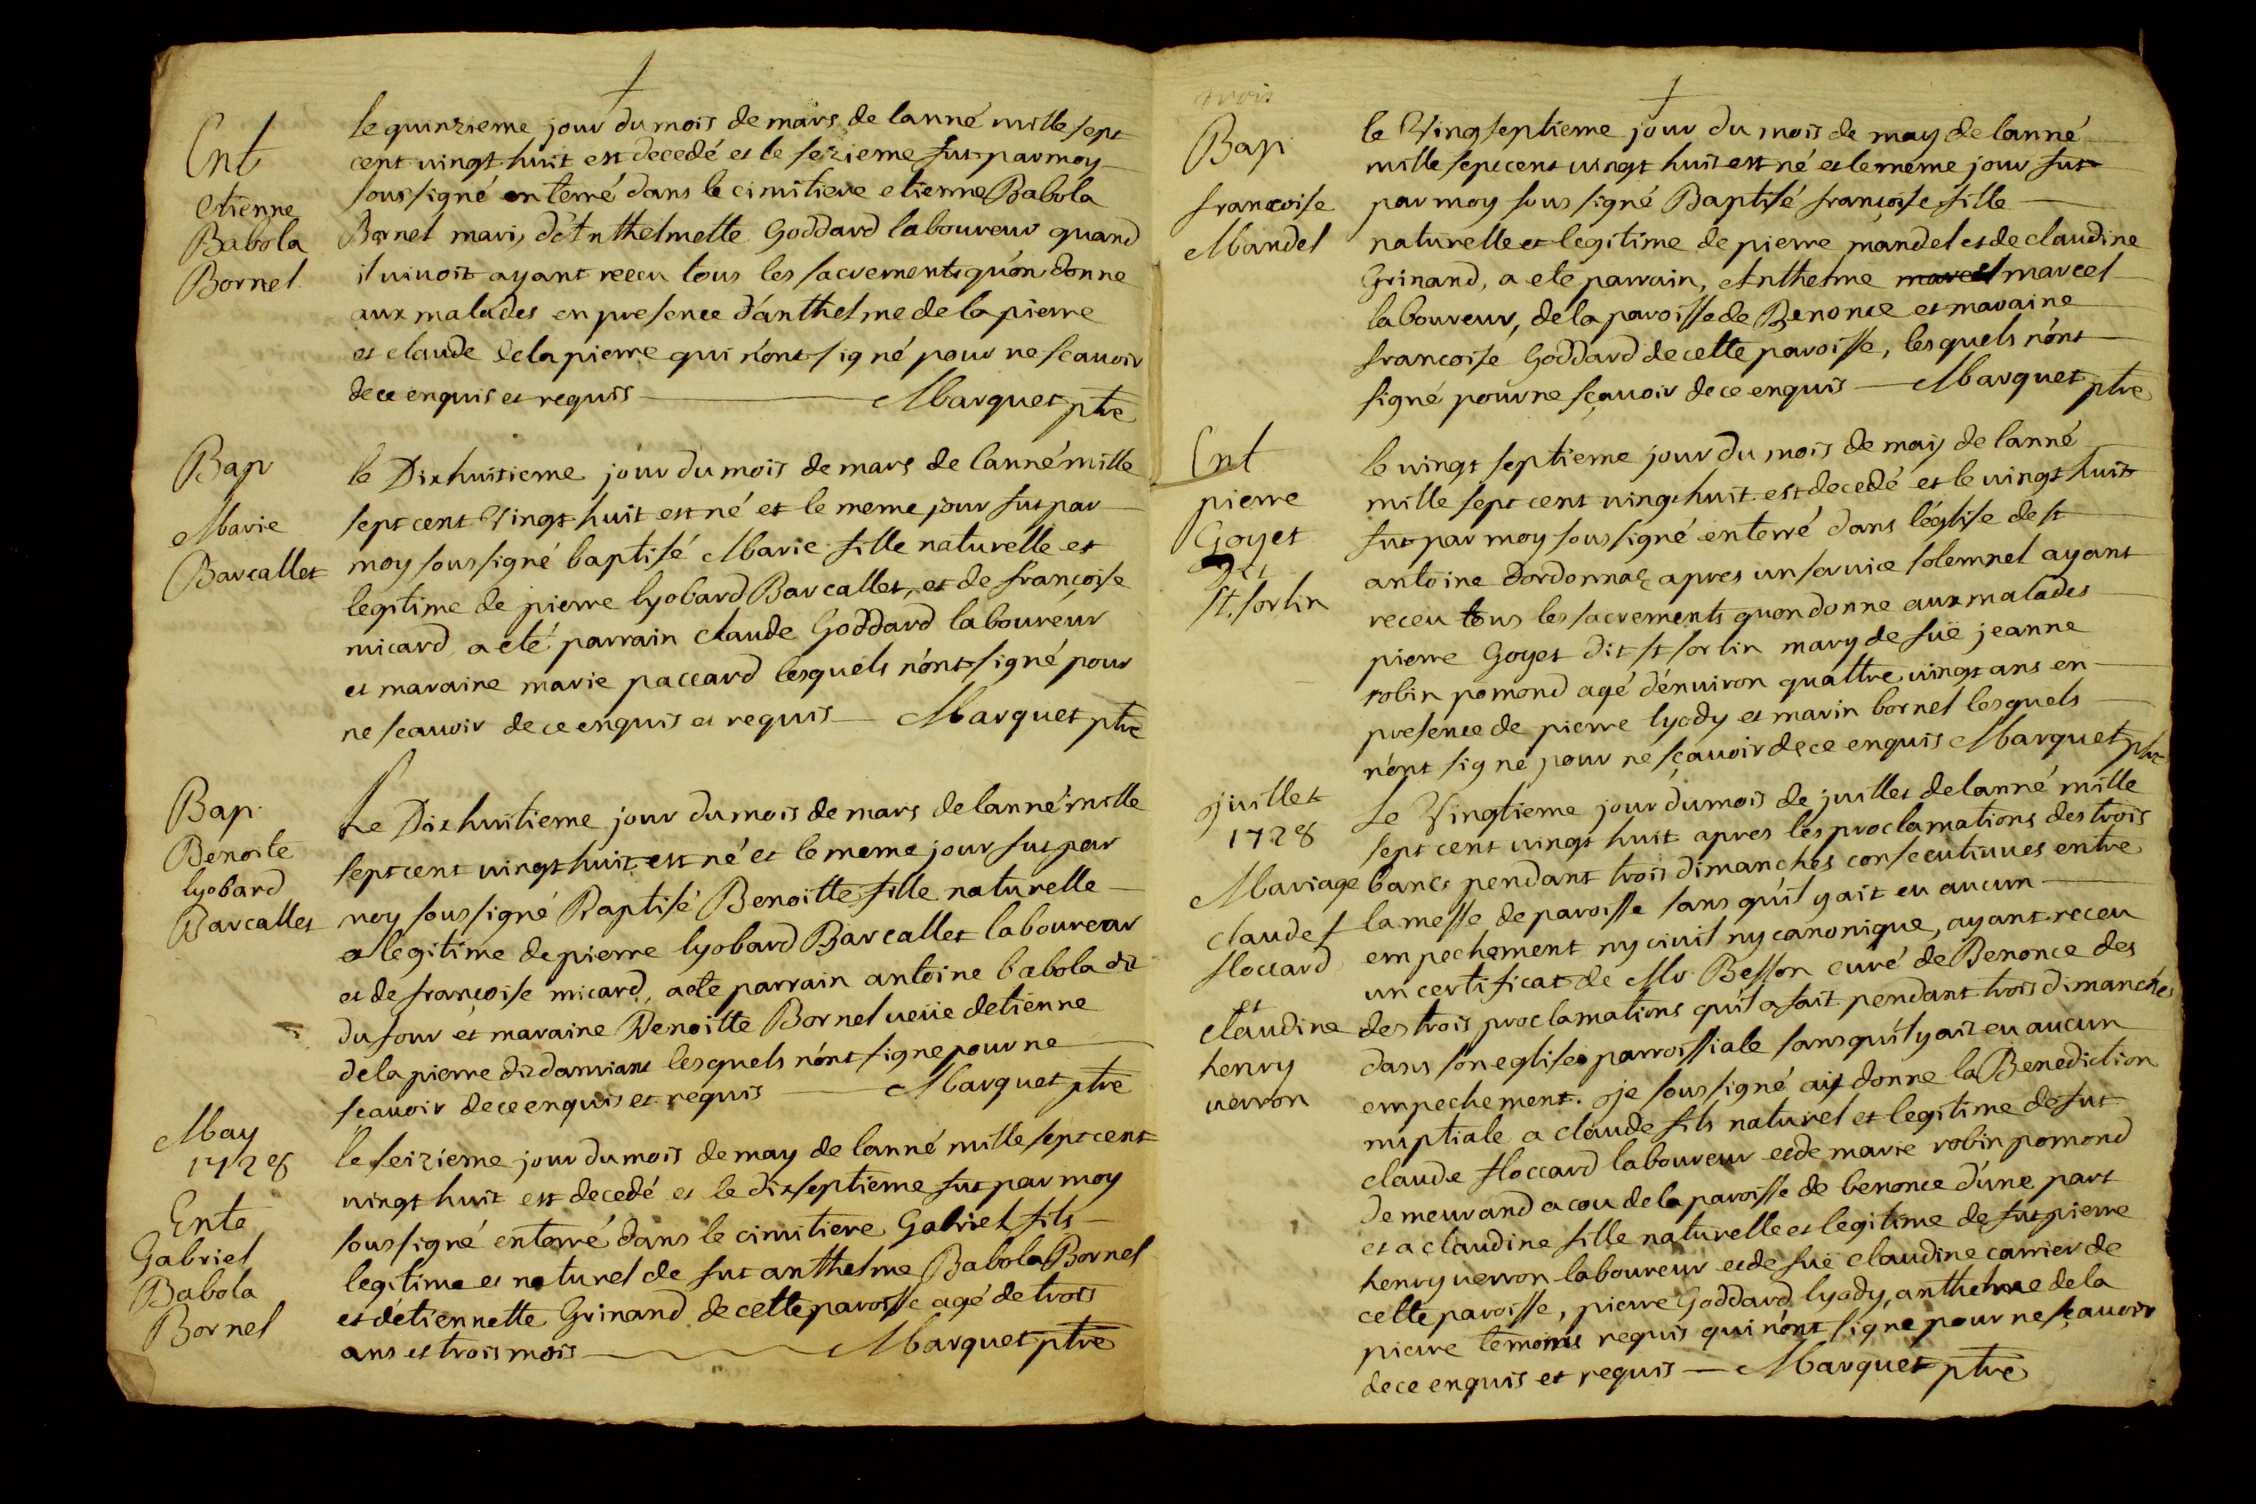 Ent
etienne
Babola
Bornel
le quinzieme jour du mois de mars de lanné mille sept
cent vingt huit est decedé et le seizieme fut par moy
sous signé enterré dans le cimitiere etienne Babola
Bornel mari d'Anthelmette Goddard laboureur quand
il vivoit ayant receu tous les sacrements qu'on donne
aux malades en presence d'anthelme de la pierre
et claude de la pierre qui n'ont signé pour ne scavoir
de ce enquis et requis Marquet ptre
Bap
Marie
Barcallet
le Dixhuitieme jour du mois de mars de lanné mille
sept cent Vingt huit est né et le meme jour fut par
moy sous signé baptisé Marie fille naturelle et
legitime de pierre lyobard Barcallet, et de françoise
micard a eté parrain claude Goddard laboureur
et maraine marie paccard lesquels n'ont signé pour
ne scavoir de ce enquis et requis Marquet ptre
Bap
Benoite
lyobard
Barcallet
Le Dixhuitieme jour du mois de mars de lanné mille
sept cent vingt huit est né et le meme jour fut par
moy sous signé Baptisé Benoitte fille naturelle
et legitime de pierre lyobard Barcallet laboureur
et de françoise micard, a ete parrain antoine babola dit
dufour et maraine Benoitte Bornel veüe detienne
de la pierre dit damians lesquels n'ont signe pour ne
scavoir de ce enquis et requis Marquet ptre
May
1728
Ente
Gabriel
Babola
Bornel
le seizieme jour du mois de may de lanné mille sept cent
vingt huit est decedé et le dixseptieme fut par moy
sous signé enterré dans le cimitiere Gabriel fils
legitime et naturel de fut anthelme Babola Bornel
et d'étiennette Grinand de cette paroisse agé de trois
ans et trois mois Marquet ptre
trois
Bap
francoise
Mandel
le Vingseptieme jour du mois de may de lanné
mille sept cent vingt huit est né et le méme jour fut
par moy sous signé Baptisé françoise fille
naturelle et legitime de pierre mandel et de claudine
Grinand, a ete parrain, Anthelme marcel marcel
laboureur, de la paroisse de Benonce et maraine
françoise Goddard de cette paroisse, lesquels n'ont
signé pour ne sçavoir de ce enquis Marquet ptre
Ent
pierre
Goyet
dit
st. sorlin
le vingt septieme jour du mois de may de lanné
mille sept cent vingt huit est decedé et le vingt huit
fut par moy sous signé enterré dans l'église de st
antoine dordonnaz apres un service solemnel ayant
receu tous les sacrements quon donne aux malades
pierre Goyet dit st sorlin mary de fuë jeanne
robin pomond agé d'environ quattre vingt ans en
presence de pierre lyody et marin bornel lesquels
n'ont signé pour ne sçavoir de ce enquis Marquet ptre
juillet
1728
Mariage
claude
floccard
et
claudine
henry
verron
Le Vingtieme jour du mois de juillet de lanné mille
sept cent vingt huit apres les proclamations des trois
bancs pendant trois dimanches consecutivues entre
la messe de paroisse sans qu'il y ait eu aucun
empechement ny civil ny canonique, ayant receu
un certificat de Mr Besson curé de Benonce des
des trois proclamations qu'il a fait pendant trois dimanches
dans son eglise parroissiale sans qu'il y ait eu aucun
empechement. je sous signé ait donne la Benediction
nuptiale a claude fils naturel et legitime de fut
claude floccard laboureur et de marie robin pomond
demeurand a cou de la paroisse de benonce d'une part
et a claudine fille naturelle et legitime de fut pierre
henry verron laboureur et de fuë claudine carrier de
cette paroisse, pierre Goddard lyody, anthelme de la
pierre temoins requis qui n'ont signé pour ne sçavoir
de ce enquis et requis Marquet ptre